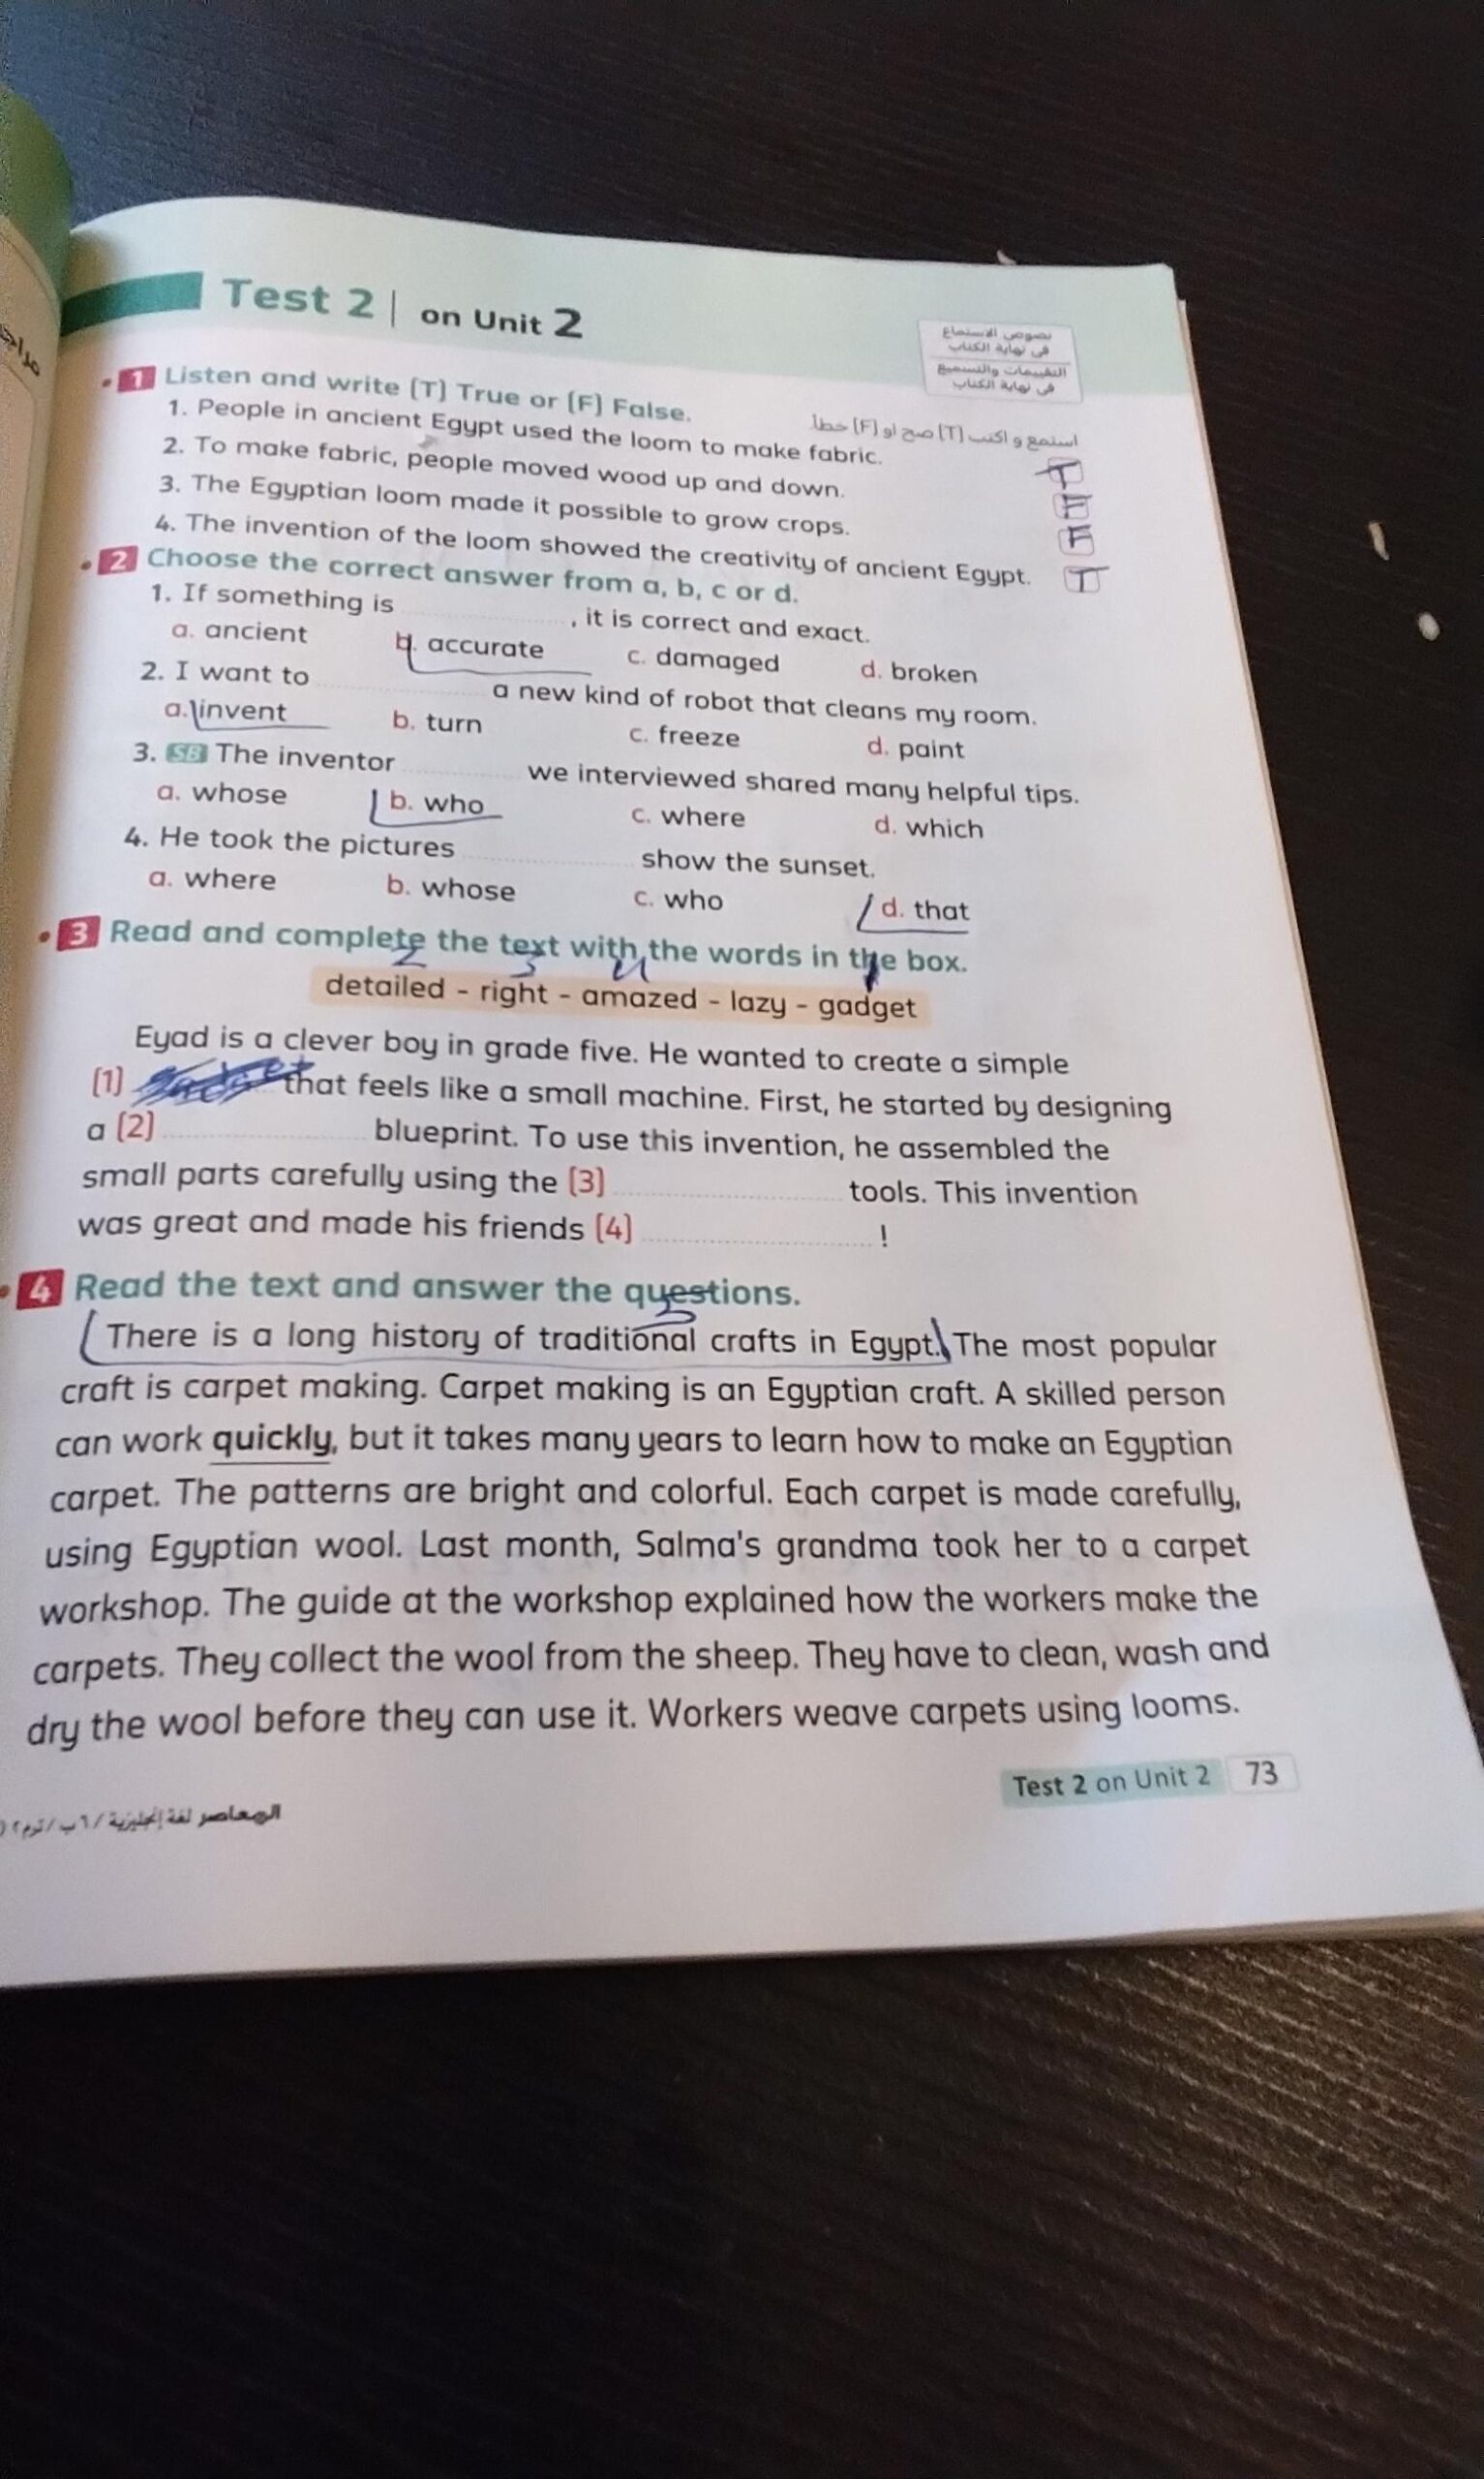 Test 2 | on Unit 2
نصوص الاستماع
فى نهاية الكتاب
التقييمات والتسميع
فى نهاية الكتاب
1 Listen and write (T) True or (F) False.
استمع و اكتب (T) صح او (F) خطأ.
1. People in ancient Egypt used the loom to make fabric. T
2. To make fabric, people moved wood up and down. F
3. The Egyptian loom made it possible to grow crops. F
4. The invention of the loom showed the creativity of ancient Egypt. T
2 Choose the correct answer from a, b, c or d.
1. If something is , it is correct and exact.
a. ancient b. accurate c. damaged d. broken
2. I want to a new kind of robot that cleans my room.
a. invent b. turn c. freeze d. paint
3. SB The inventor we interviewed shared many helpful tips.
a. whose b. who c. where d. which
4. He took the pictures show the sunset.
a. where b. whose c. who d. that
3 Read and complete the text with the words in the box.
2 3 4 1
detailed - right - amazed - lazy - gadget
Eyad is a clever boy in grade five. He wanted to create a simple
(1) that feels like a small machine. First, he started by designing
a (2) blueprint. To use this invention, he assembled the
small parts carefully using the (3) tools. This invention
was great and made his friends (4) !
4 Read the text and answer the questions.
There is a long history of traditional crafts in Egypt. The most popular
craft is carpet making. Carpet making is an Egyptian craft. A skilled person
can work quickly, but it takes many years to learn how to make an Egyptian
carpet. The patterns are bright and colorful. Each carpet is made carefully,
using Egyptian wool. Last month, Salma's grandma took her to a carpet
workshop. The guide at the workshop explained how the workers make the
carpets. They collect the wool from the sheep. They have to clean, wash and
dry the wool before they can use it. Workers weave carpets using looms.
Test 2 on Unit 2 73
المعاصر لغة إنجليزية / ٦ ب / ترم ٢